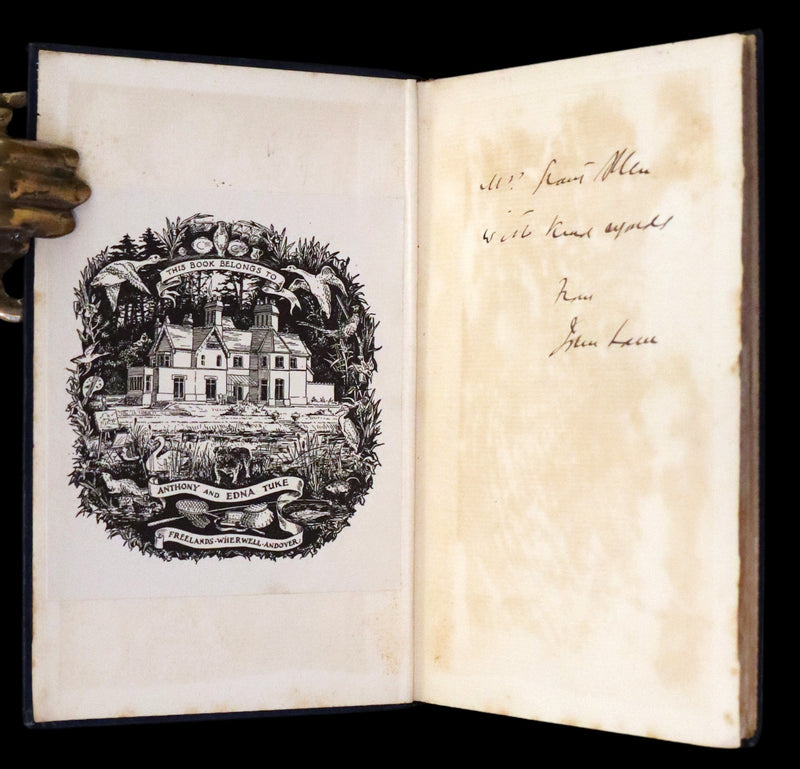 THIS BOOK BELONGS TO
ANTHONY AND EDNA TUKE
FREELANDS·WHERWELL·ANDOVER
Mrs Grant Allen
with kind regards
from
John Lane